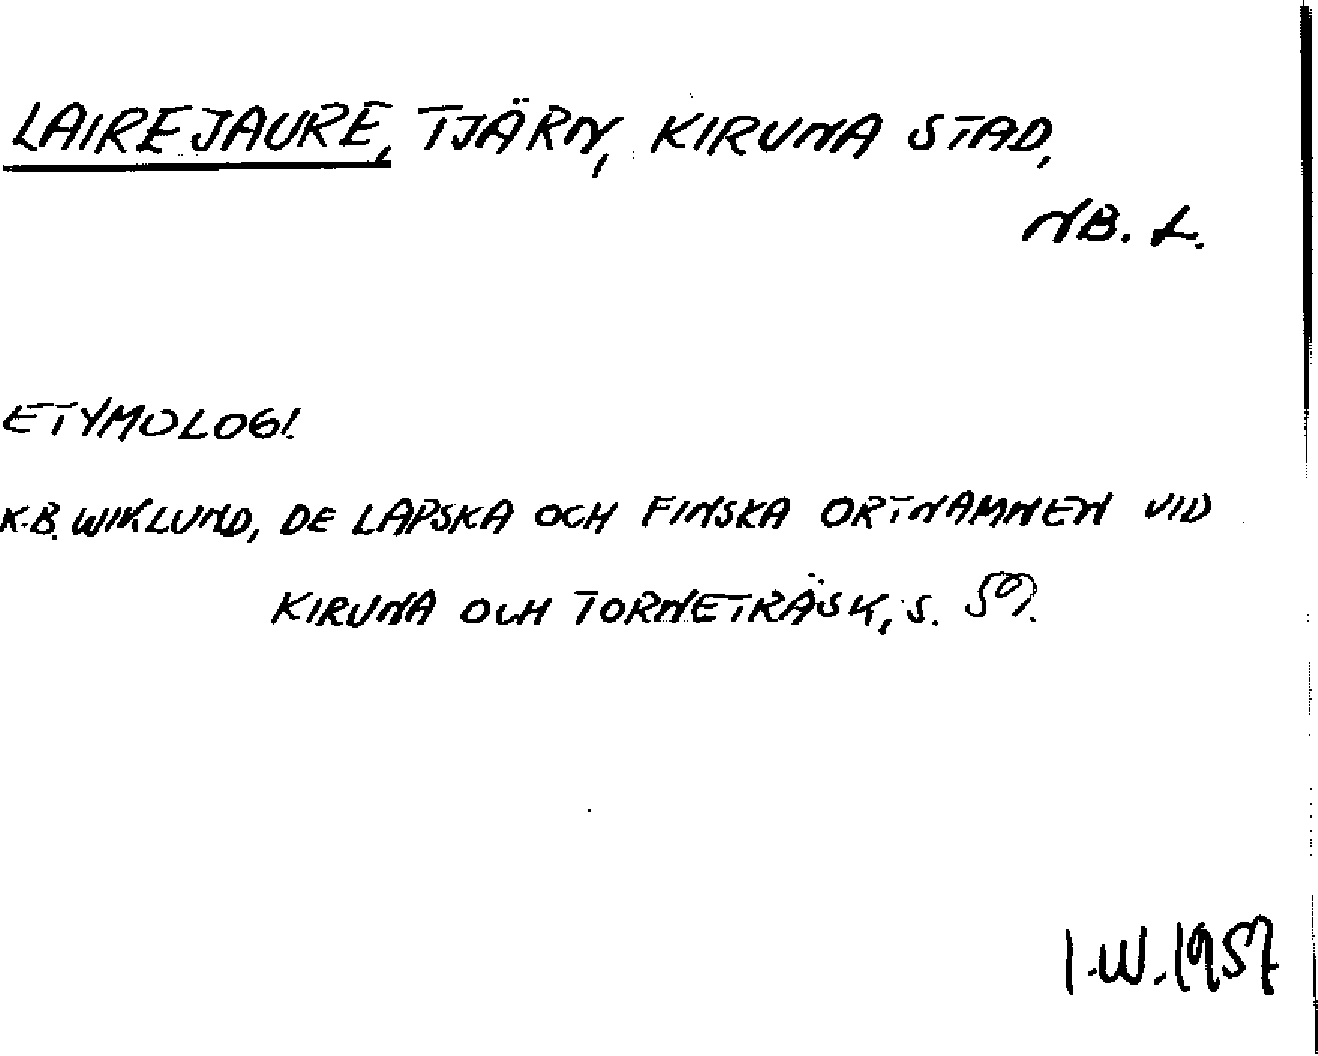 LAIREJAURE, TJÄRN, KIRUNA STAD,
NB. L.
ETYMOLOGI.
K.B. WIKLUND, DE LAPSKA OCH FINSKA ORTNAMNEN VID
KIRUNA OCH TORNETRÄSK, S. 59.
I.W. 1957